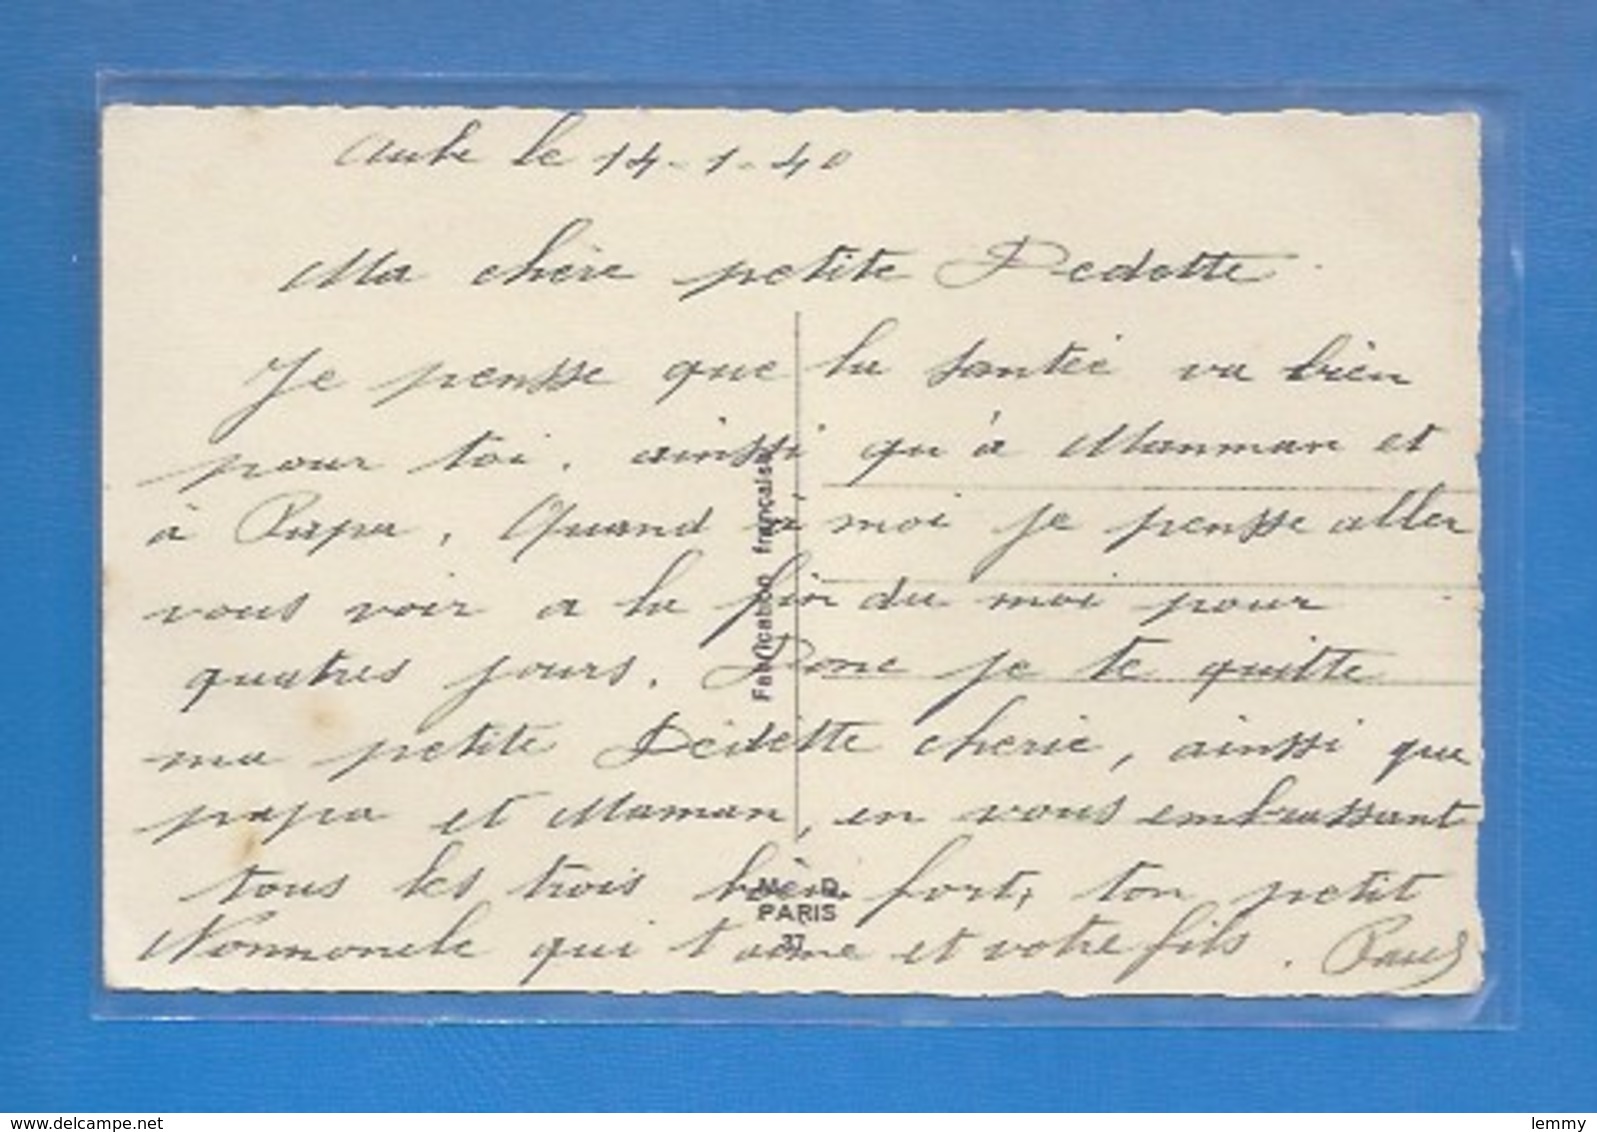 Aube le 14-1-40
Ma chère petite Dedette.
Je pensse que la santéé va bien
pour toi. ainssi qu'à Manman et
à Papa. Quand à moi je pensse aller
vous voir a la fin du moi pour
quatres jours. Donc je te quitte
ma petite Dédètte cherie, ainssi que
papa et Maman, en vous embrassant
tous les trois bien fort, ton petit
qui t'aime et votre fils. Paul
Fabrication française
M. D.
PARIS
37
delcampe.net
lemmy